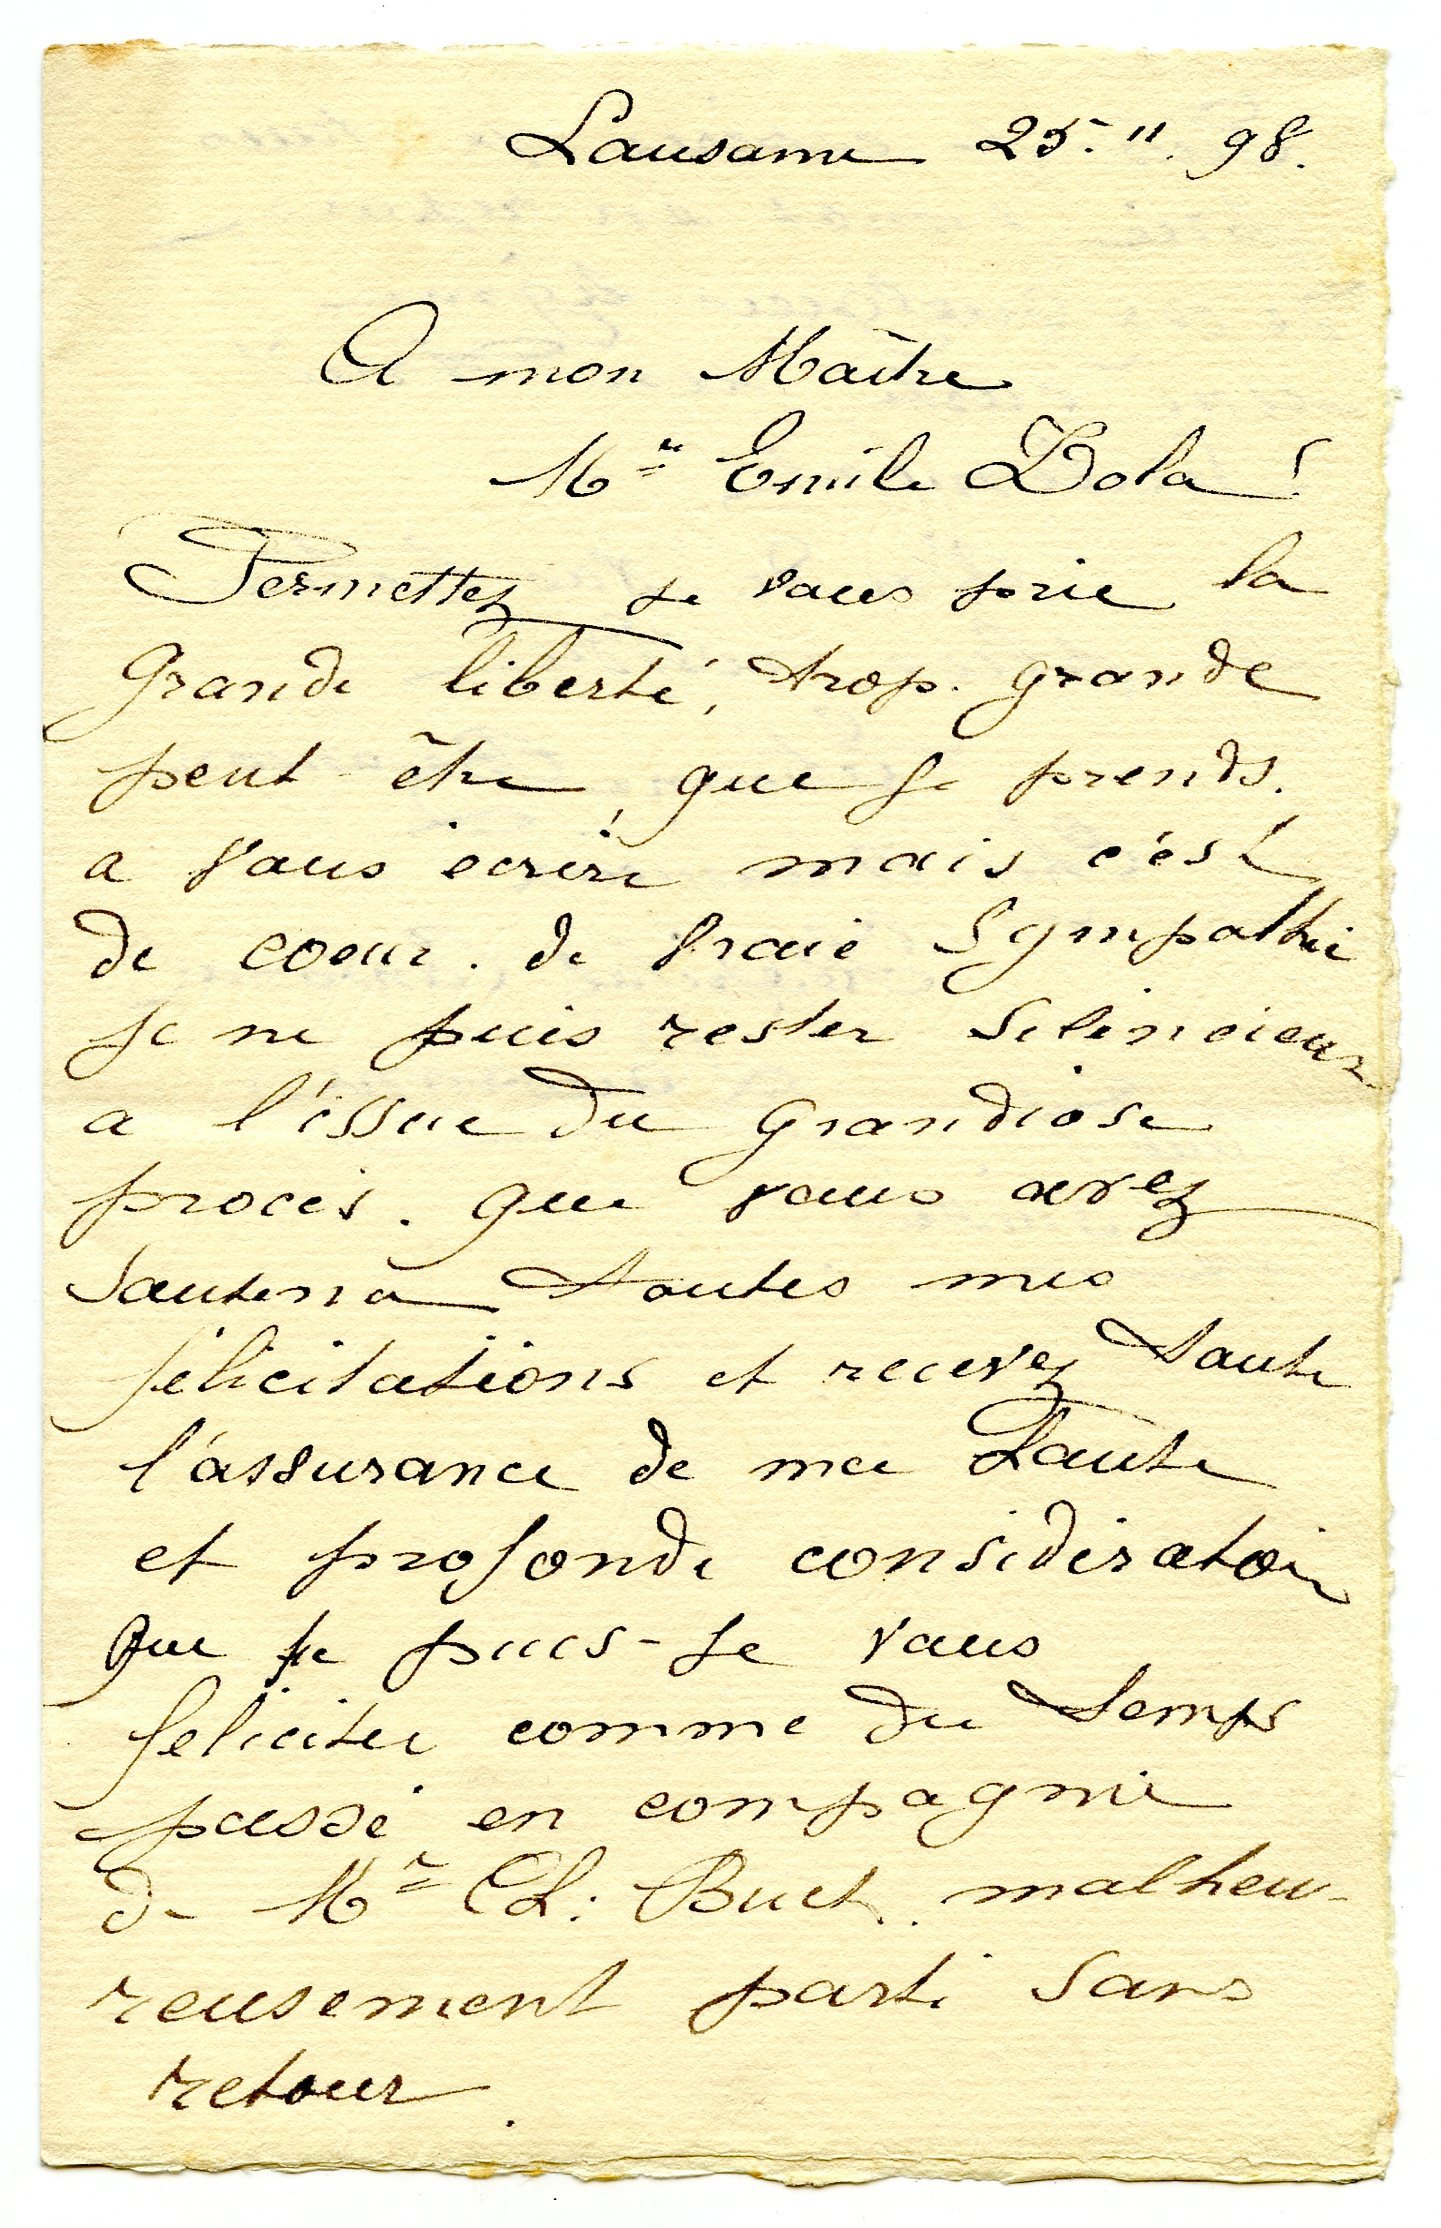 Lausanne 25. II. 98.
A mon Maître
Mr Emile Zola!
Permettez je vous prie la
grande liberté, trop grande
peut-être, que je prends.
a vous écrire mais c'est
de coeur. de vraie Sympathie
je ne puis rester Silencieux
a l'issue du Grandiose
procès. que vous avez
Soutenu toutes mes
félicitations et recevez toute
l'assurance de ma Haute
et profonde considération
Que je puis-je vous
feliciter comme du temps
passé en compagnie
de Mr Ch. Buet. malheu-
reusement parti sans
retour.